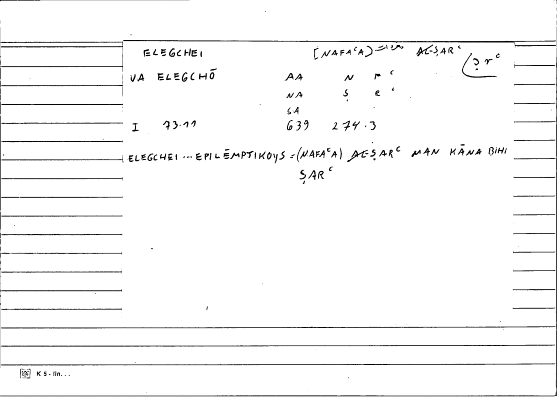 ELEGCHEI [NAFAᶜA] ṢARᶜ ṣrᶜ
VA ELEGCHŌ AA N rᶜ
NA Ṣ eᶜ
SA
I 73.11 639 274.3
ELEGCHEI ... EPILĒMPTIKOYS = (NAFAᶜA) ṢARᶜ MAN KĀNA BIHI
ṢARᶜ
K 5 - lin...